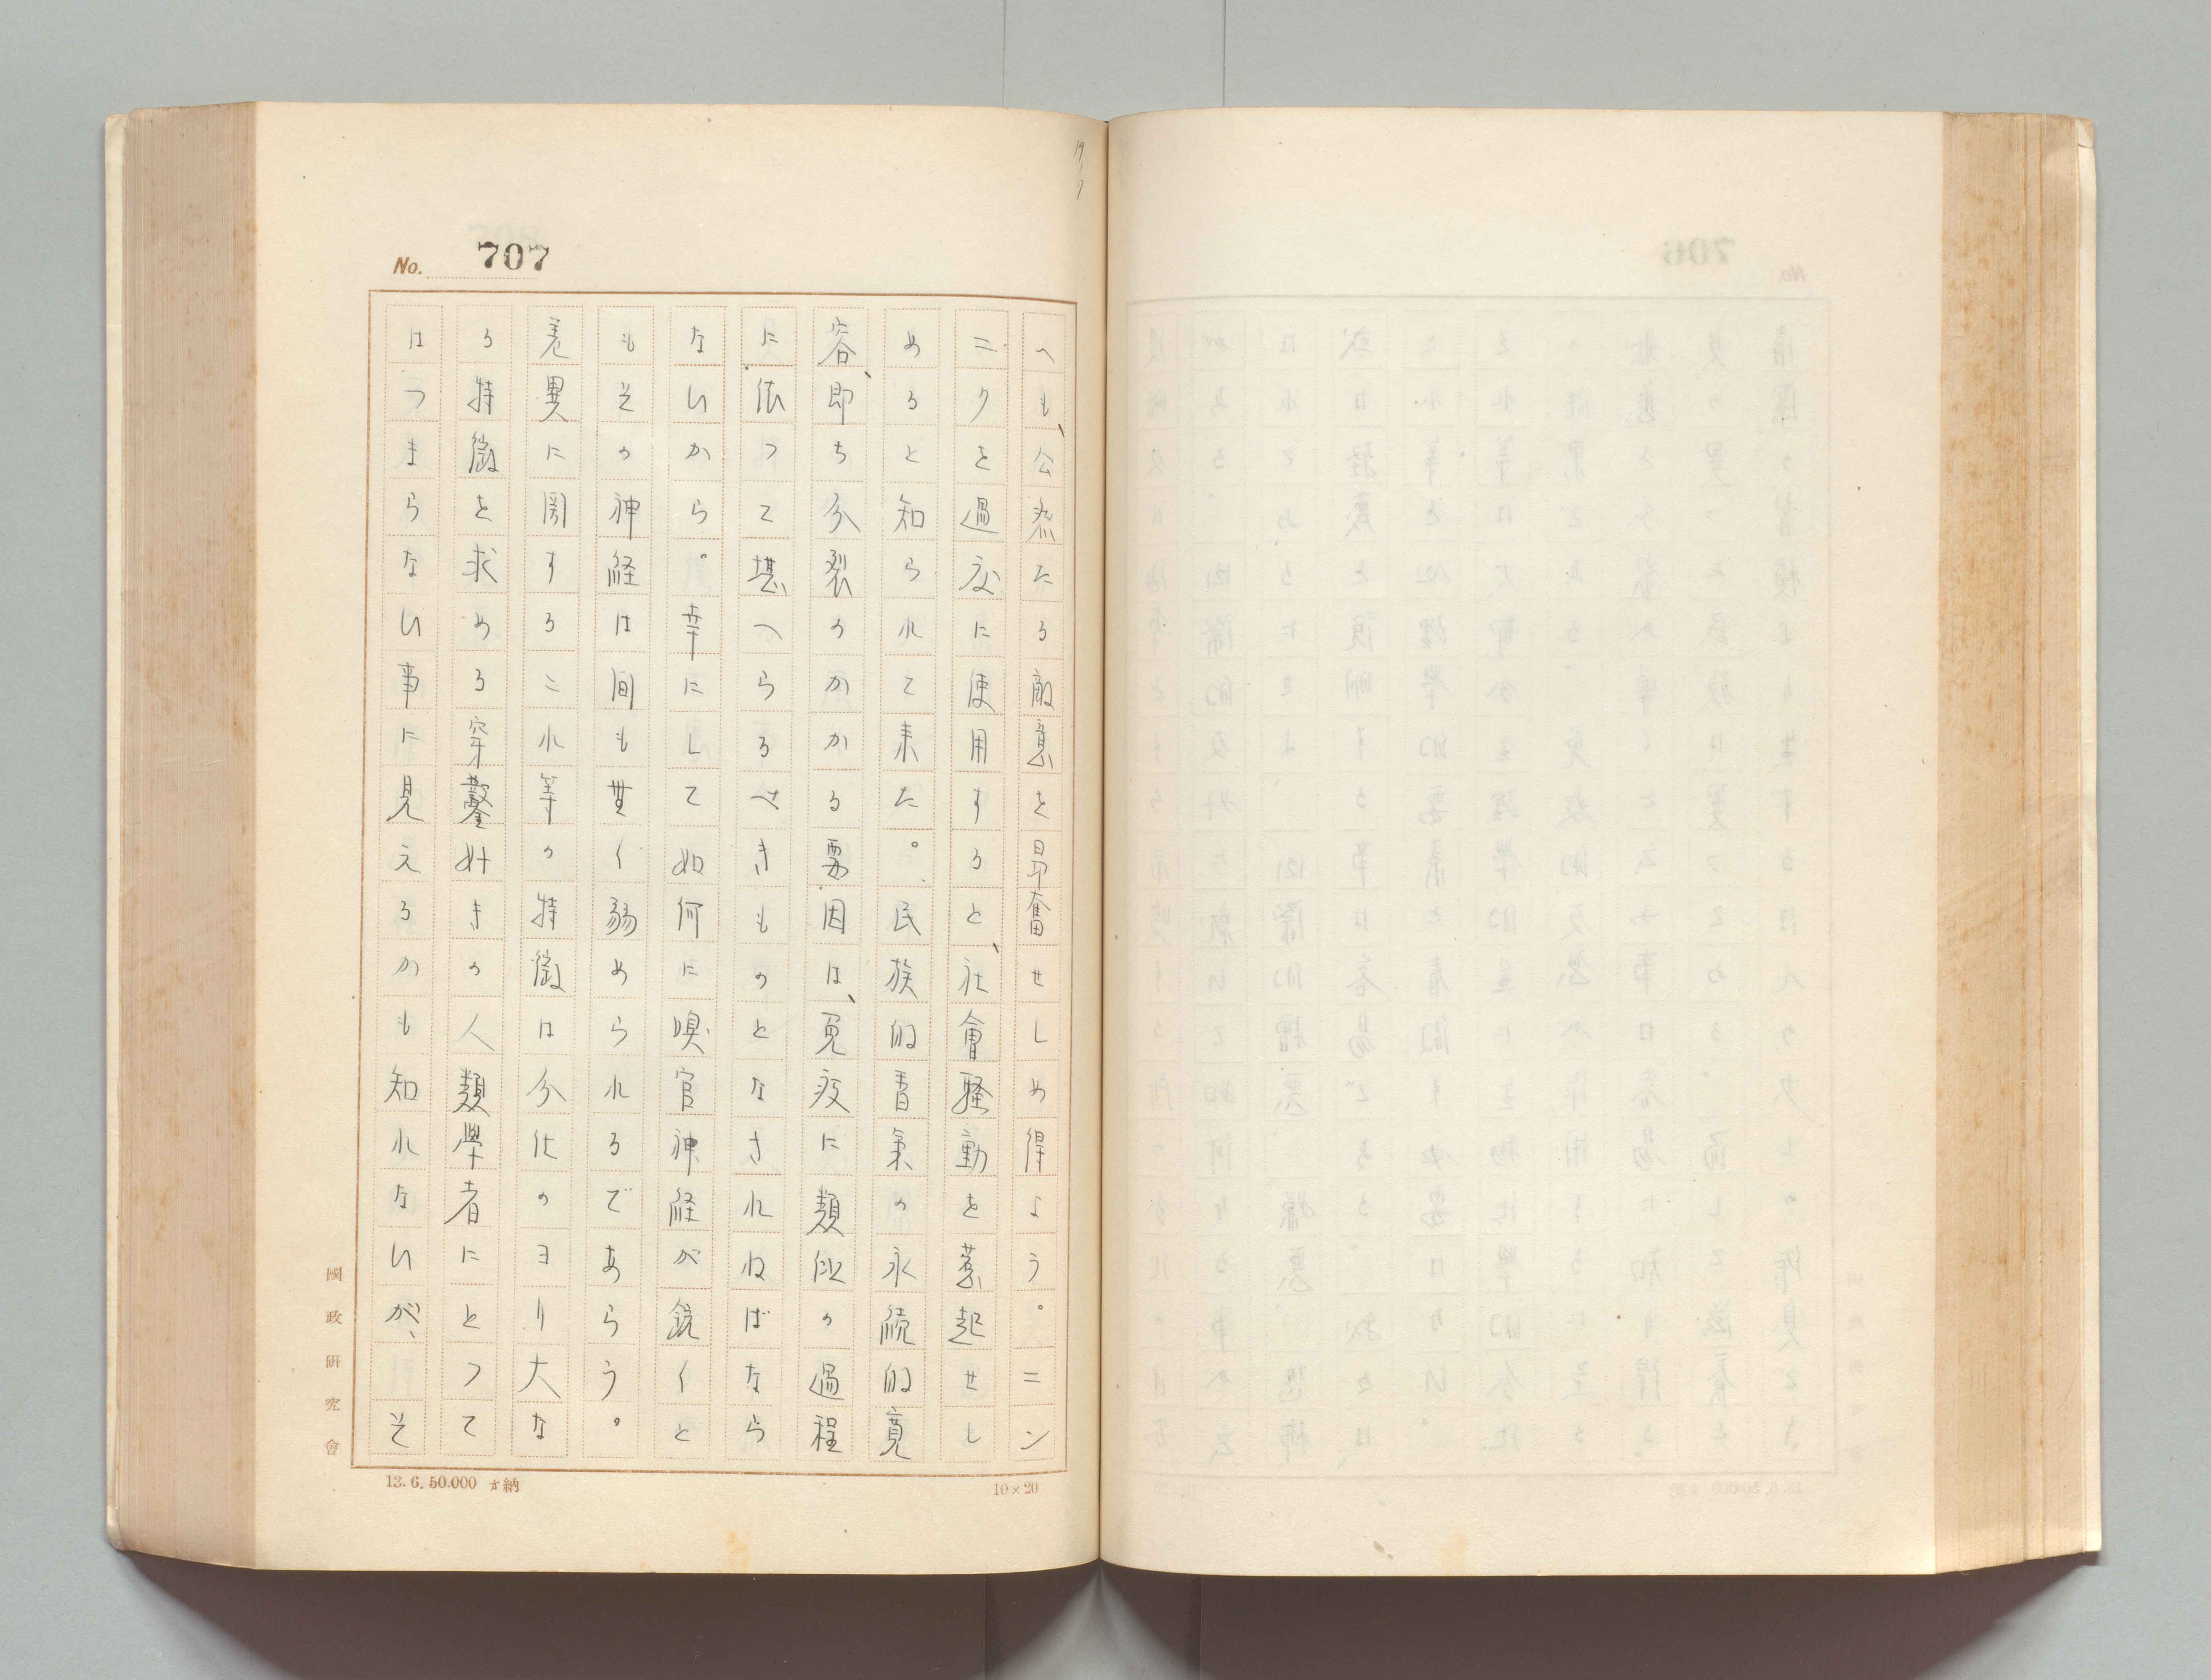 19
7
No. 707
へも、公然たる敵意を昻奮せしめ得よう。ニン
ニクを過度に使用すると、社會騷動を惹起せし
めると知られて来た。民族的香氣の永続的寛
容、即ち分裂のかかる要因は、免疫に類似の過程
に依つて堪へらるべきものとなされねばなら
ないから。幸にして如何に嗅官神経が鋭くと
もその神経は間も無く弱められるであらう。
差異に関するこれ等の特徴は分化のヨり大な
る特徴を求める穿鑿好きの人類學者にとつて
はつまらない事に見えるかも知れないが、そ
國政研究會
13.6.50.000 納
10×20